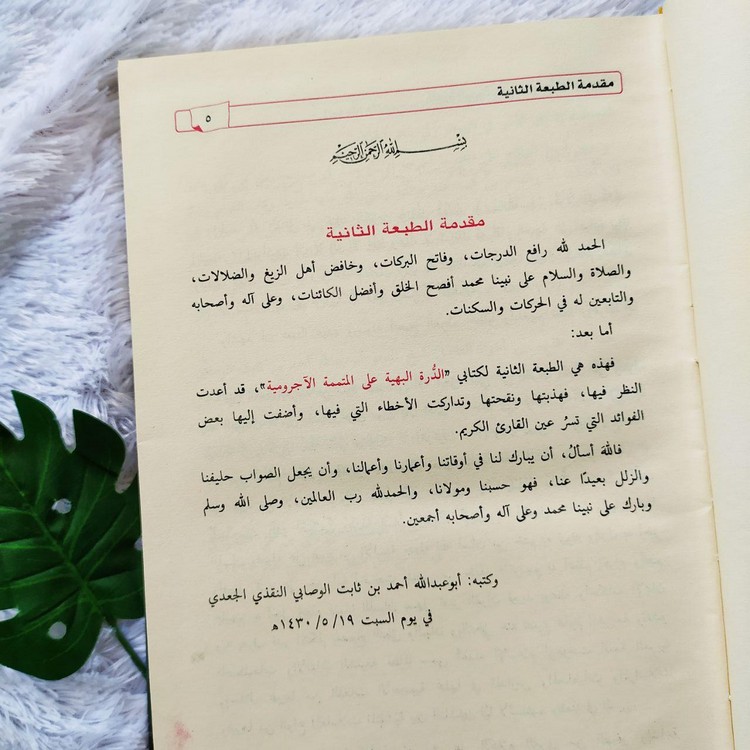 مقدمة الطبعة الثانية
٥
بسم الله الرحمن الرحيم
مقدمة الطبعة الثانية
الحمد لله رافع الدرجات، وفاتح البركات، وخافض أهل الزيغ والضلالات،
والصلاة والسلام على نبينا محمد أفصح الخلق وأفضل الكائنات، وعلى آله وأصحابه
والتابعين له في الحركات والسكنات.
أما بعد:
فهذه هي الطبعة الثانية لكتابي «الدُّرة البهية على المتممة الآجرومية»، قد أعدت
النظر فيها، فهذبتها ونقحتها وتداركت الأخطاء التي فيها، وأضفت إليها بعض
الفوائد التي تسرُ عين القارئ الكريم.
فاللهَ أسألُ، أن يبارك لنا في أوقاتنا وأعمارنا وأعمالنا، وأن يجعل الصواب حليفنا
والزلل بعيدًا عنا، فهو حسبنا ومولانا، والحمدلله رب العالمين، وصلى الله وسلم
وبارك على نبينا محمد وعلى آله وأصحابه أجمعين.
وكتبه: أبوعبدالله أحمد بن ثابت الوصابي النقذي الجعدي
في يوم السبت ١٩/ ٥/ ١٤٣٠هـ